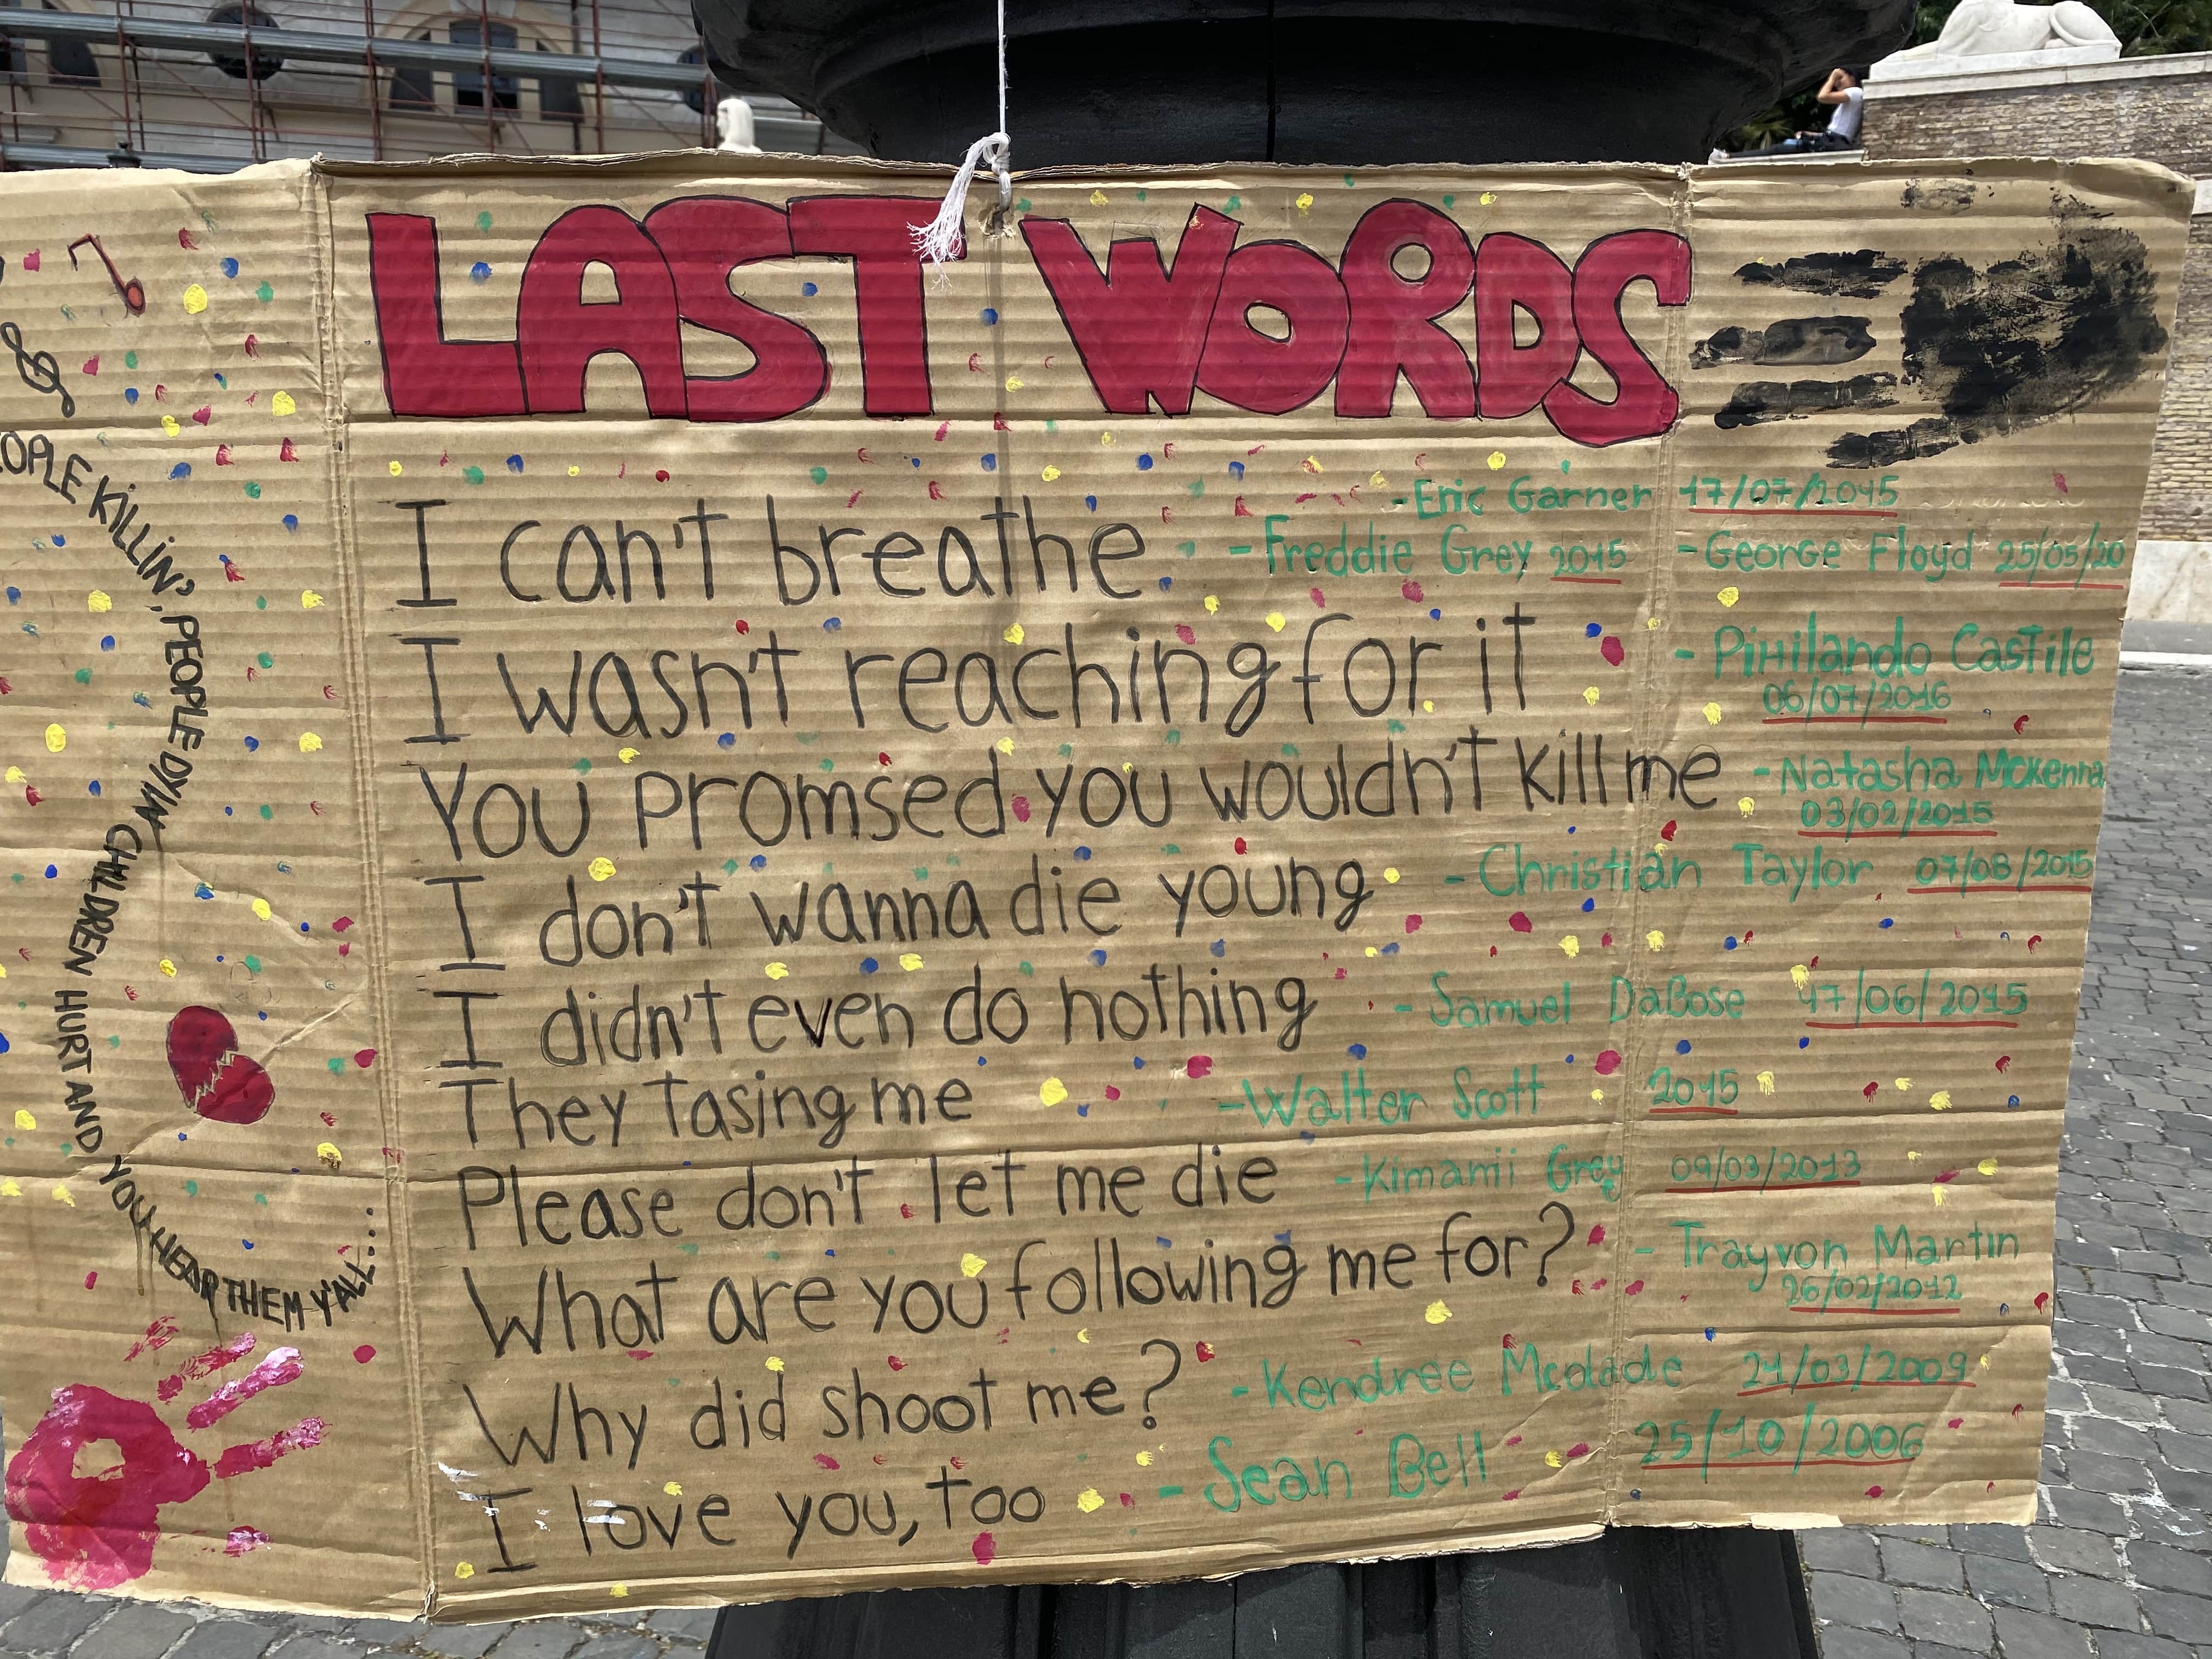 LAST WORDS
-Eric Garner 17/07/2015
I can't breathe. -Freddie Grey 2015 -George Floyd 25/05/20
I wasn't reaching for it -PiHilando Castile
06/07/2016
You promsed you wouldn't kill me -Natasha Mckenna
03/02/2015
I don't wanna die young -Christian Taylor 07/08/2015
I didn't even do nothing -Samuel DaBose 17/06/2015
They tasing me -Walter Scott 2015
Please don't let me die -Kimanii Grey 09/03/2013
What are you following me for? -Trayvon Martin
26/02/2012
Why did shoot me? -Kendree Mcdade 21/03/2009
I love you, too -Sean Bell 25/10/2006
OPLE KILLIN', PEOPLE DYIN' CHILDREN HURT AND YOU HEAR THEM Y'ALL...